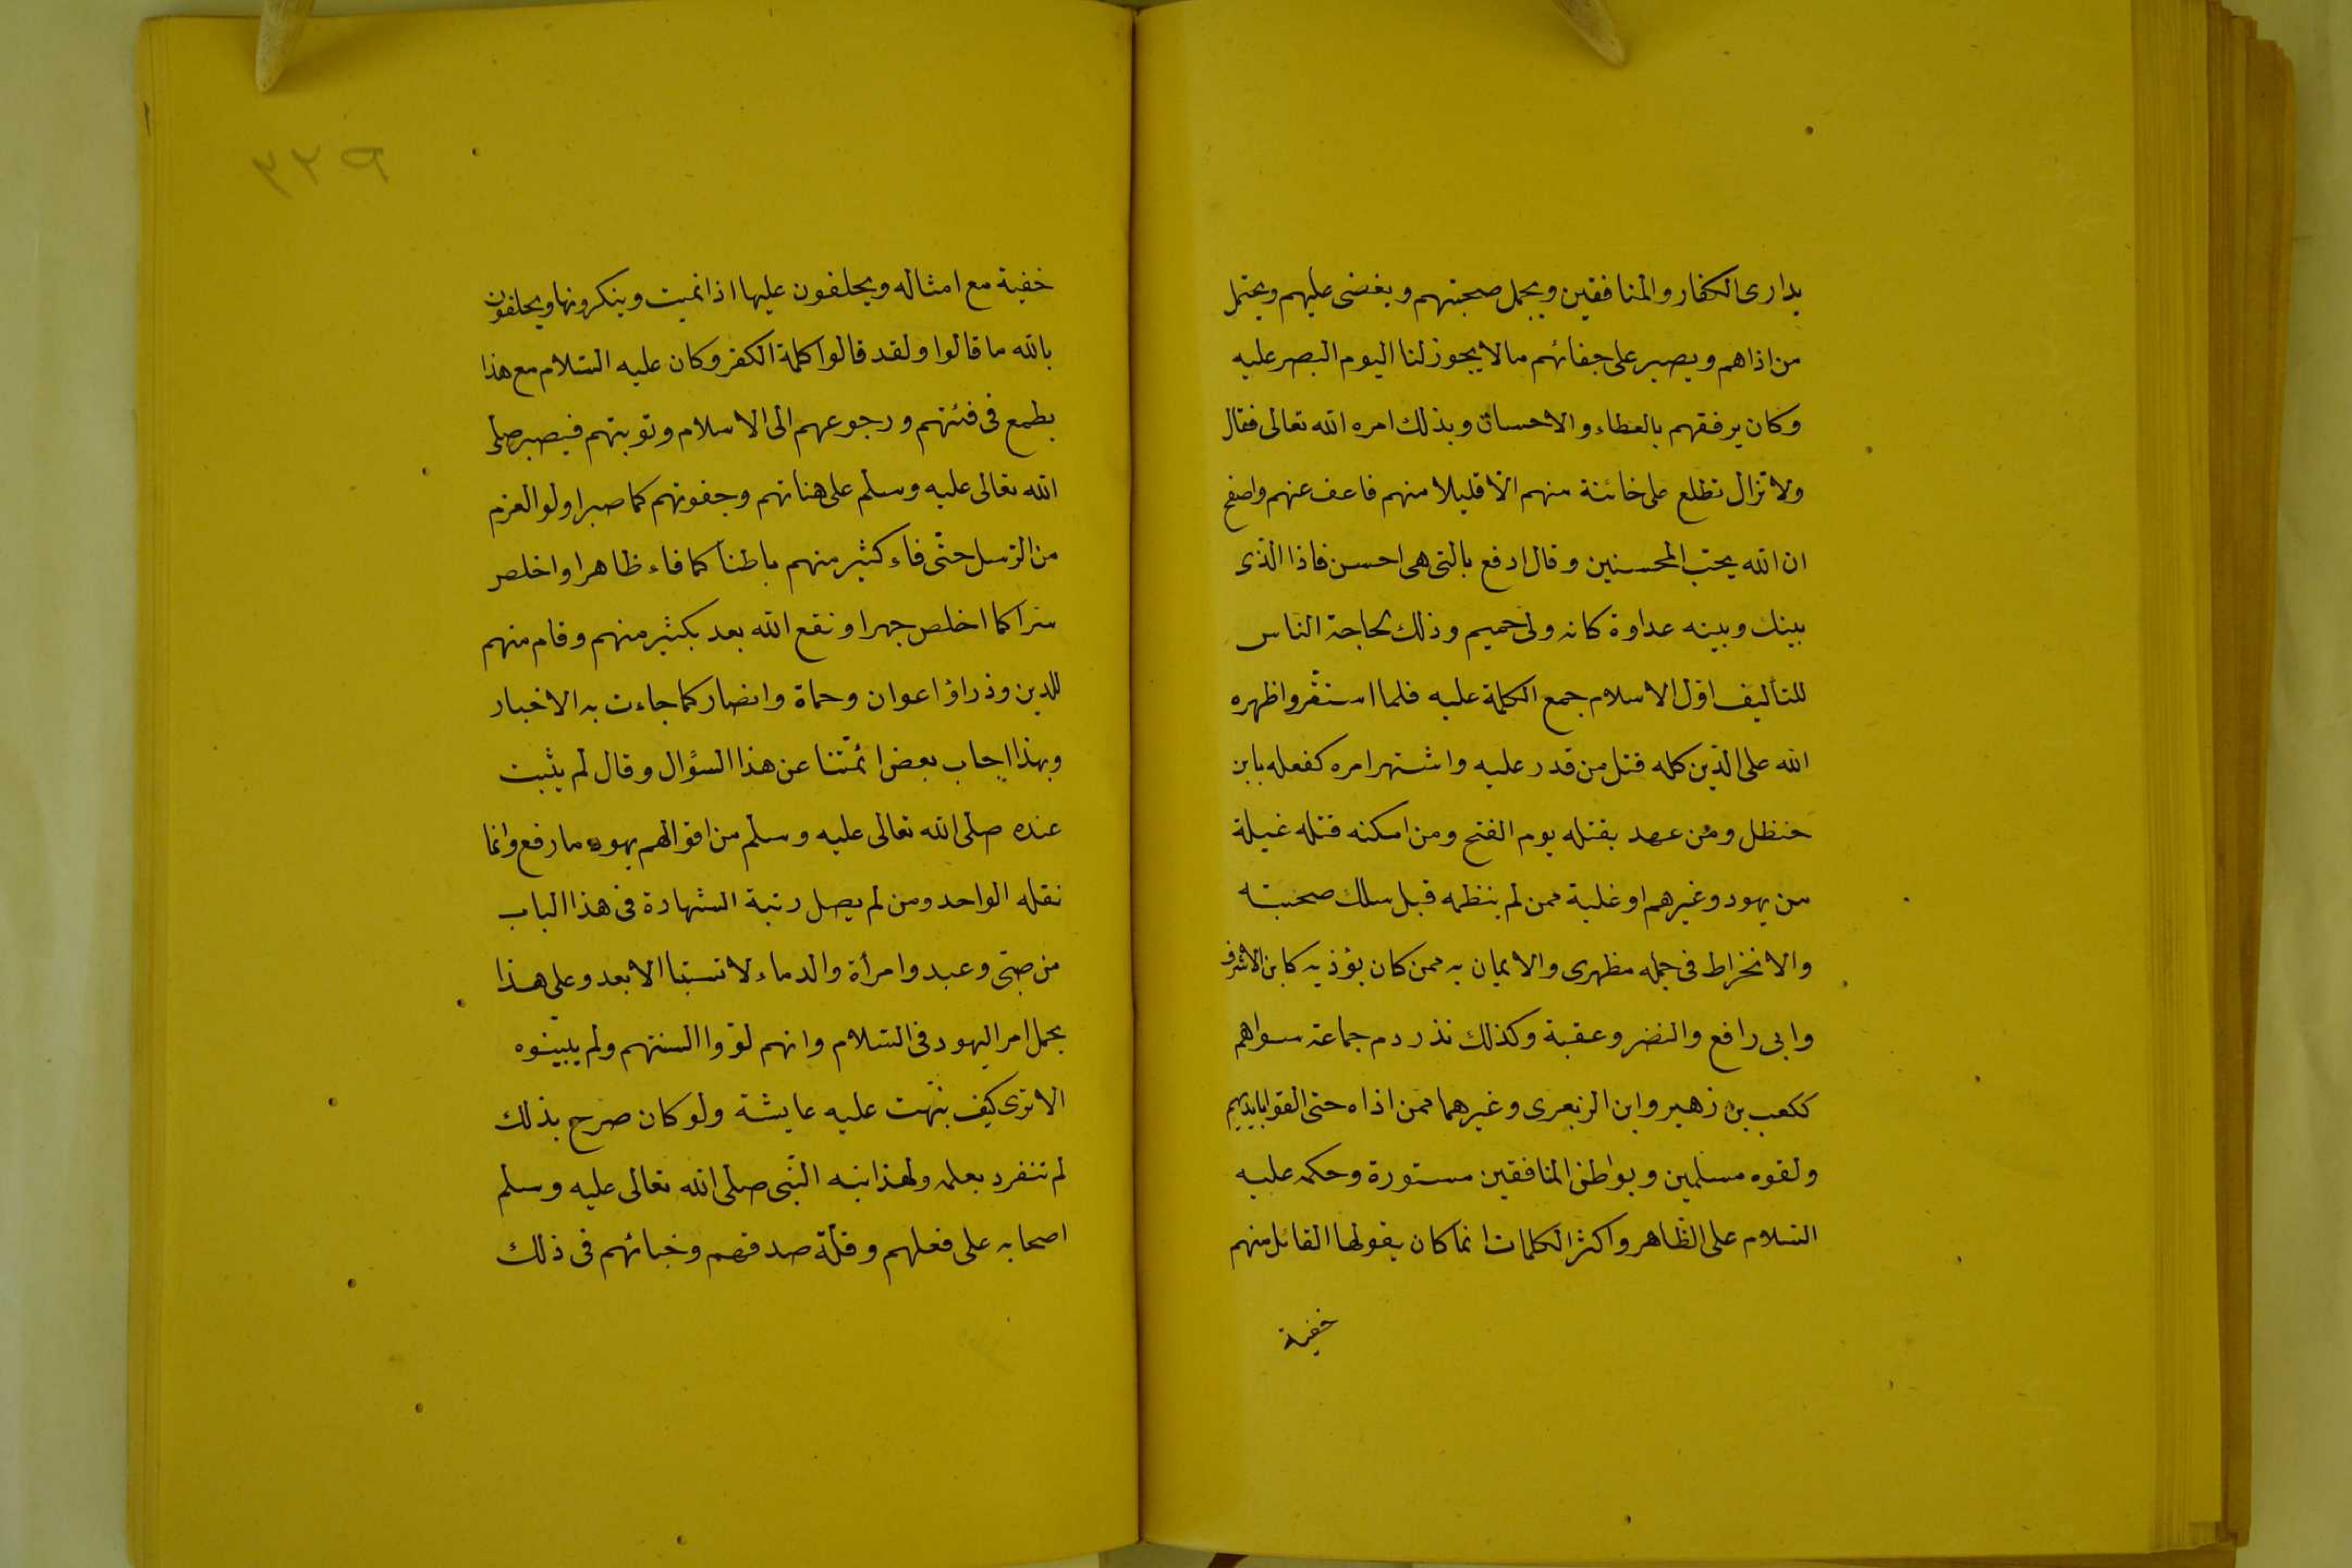 يدارى الكفار والمنافقين ويجمل صحبتهم ويغضى عليهم ويحتمل
من اذاهم ويصبر على جفائهم مالا يجوز لنا اليوم البصر عليه
وكان يرفقهم بالعطاء والاحسان وبذلك امره الله تعالى فقال
ولا تزال تطلع على خائنة منهم الا قليلا منهم فاعف عنهم واصفح
ان الله يحب المحسنين وقال ادفع بالتى هى احسن فاذا الذى
بينك وبينه عداوة كانه ولى حميم وذلك لحاجة الناس
للتأليف اول الاسلام جمع الكلمة عليه فلما استقر واظهره
الله على الدين كله قتل من قدر عليه واشتهر امره كفعله بابن
خنظل ومن عهد بقتله يوم الفتح ومن امكنه قتله غيلة
من يهود وغيرهم او غلبة ممن لم ينظمه قبل سلك صحبته
والانخراط فى جمله مظهرى والايمان به ممن كان يؤذيه كابن الاشرف
وابى رافع والنضر وعقبة وكذلك نذر دم جماعة سواهم
ككعب بن زهير وابن الزبعرى وغيرهما ممن اذاه حتى القوا بايديهم
ولقوه مسلمين وبواطن المنافقين مستورة وحكمه عليه
السلام على الظاهر واكثر الكلمات انما كان يقولها القائل منهم
خفية
٢٢٩
خفية مع امثاله ويحلفون عليها اذا نميت وينكرونها ويحلفون
بالله ما قالوا ولقد قالوا كلمة الكفر وكان عليه السلام مع هذا
يطمع فى فئتهم ورجوعهم الى الاسلام وتوبتهم فيصبر صلى
الله تعالى عليه وسلم على هناتهم وجفوتهم كما صبر اولو العزم
من الرسل حتى فاء كثير منهم باطنا كما فاء ظاهرا واخلص
سرا كما اخلص جهرا ونفع الله بعد بكثير منهم وقام منهم
للدين وذراؤ اعوان وحماة وانصار كما جاءت به الاخبار
وبهذا اجاب بعض ائمتنا عن هذا السؤال وقال لم يثبت
عنده صلى الله تعالى عليه وسلم من اقوالهم يهود ما رفع وانما
نقله الواحد ومن لم يصل رتبة الشهادة فى هذا الباب
من صبى وعبد وامرأة والدماء لا تستبا الا بعد وعلى هذا
يحمل امر اليهود فى السلام وانهم لووا السنتهم ولم يبينوه
الا ترى كيف نبهت عليه عايشة ولو كان صرح بذلك
لم تنفرد بعلمه ولهذا نبه النبى صلى الله تعالى عليه وسلم
اصحابه على فعلهم وقلة صدقهم وخبائهم فى ذلك